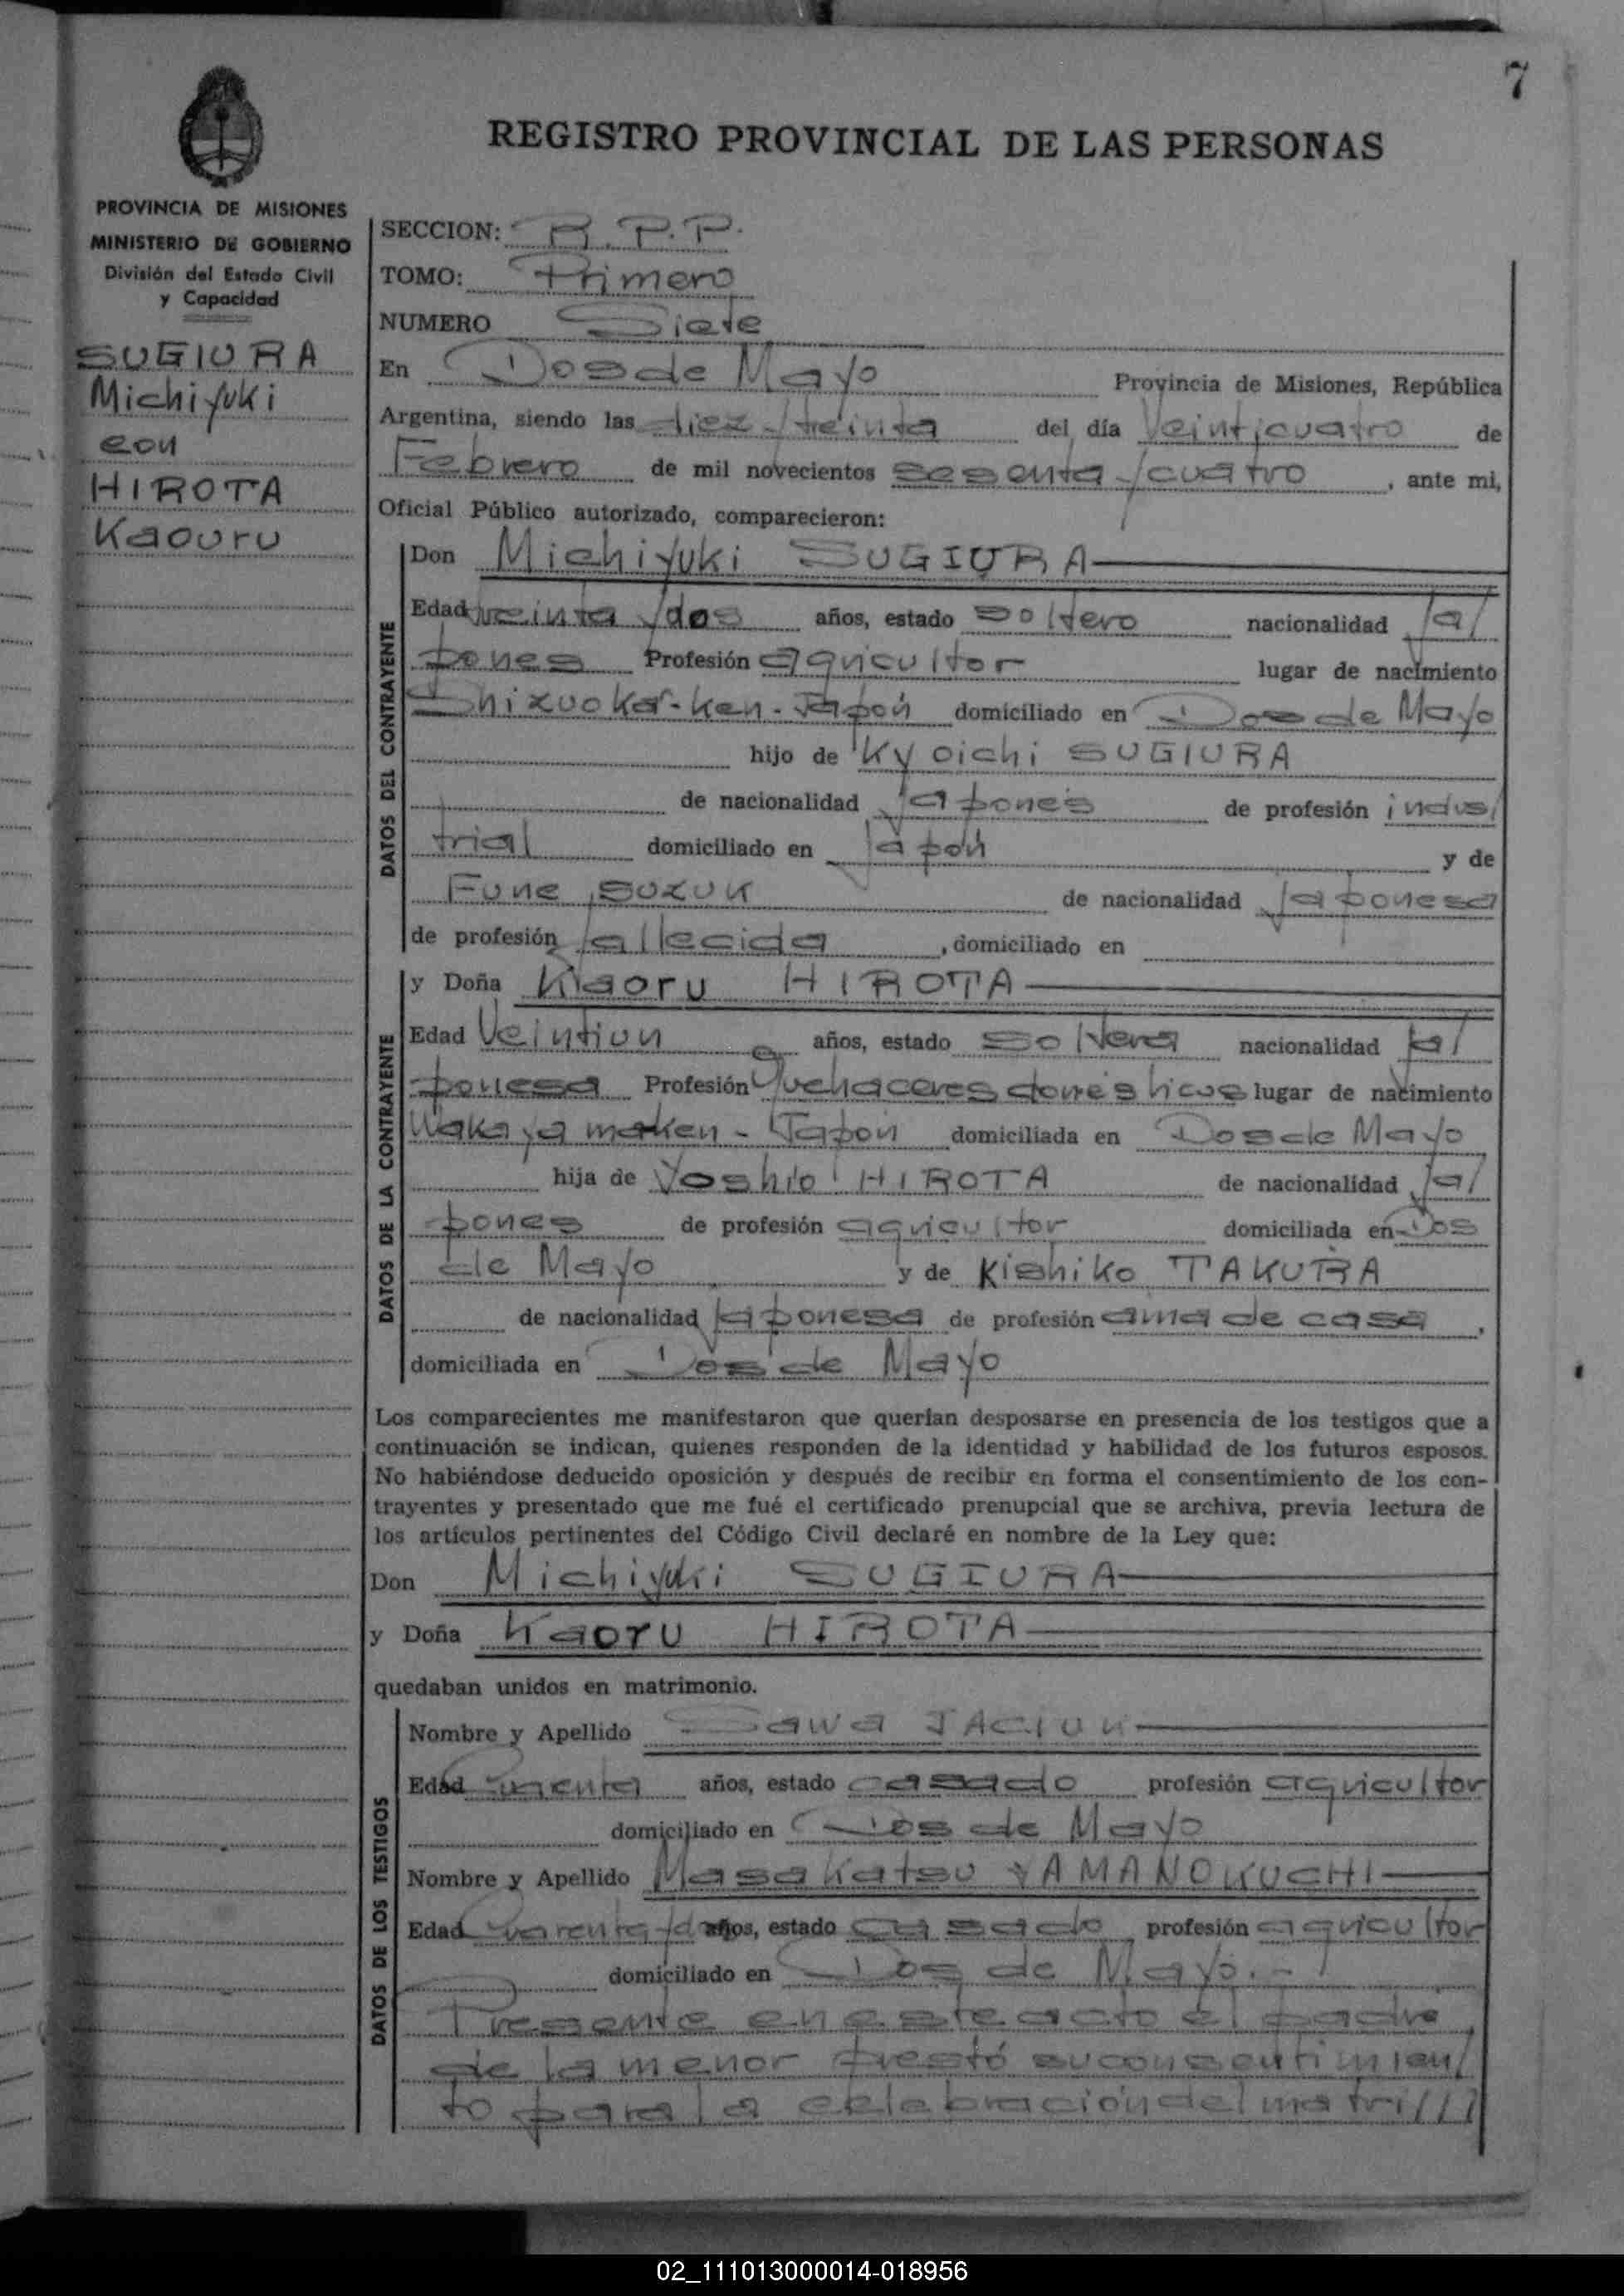 7
REGISTRO PROVINCIAL DE LAS PERSONAS
PROVINCIA DE MISIONES
MINISTERIO DE GOBIERNO
División del Estado Civil
y Capacidad
SUGIURA
Michiyuki
con
HIROTA
Kaouru
SECCION: R.P.P.
TOMO: Primero
NUMERO Siete
En Dos de Mayo Provincia de Misiones, República
Argentina, siendo las diez y treinta del día Veinticuatro de
Febrero de mil novecientos sesenta y cuatro, ante mi,
Oficial Público autorizado, comparecieron:
DATOS DEL CONTRAYENTE
Don Michiyuki SUGIURA
Edad treinta y dos años, estado soltero nacionalidad ja/
pones Profesión agricultor lugar de nacimiento
Shizuoka-ken-Japón domiciliado en Dos de Mayo
hijo de Kyoichi SUGIURA
de nacionalidad japonés de profesión indus/
trial domiciliado en Japón y de
Fune SUZUK de nacionalidad japonesa
de profesión fallecida, domiciliado en
DATOS DE LA CONTRAYENTE
y Doña Kaoru HIROTA
Edad Veintiun años, estado soltera nacionalidad ja/
ponesa Profesión Quehaceres domésticos lugar de nacimiento
Wakayamaken - Japón domiciliada en Dos de Mayo
hija de Yoshio HIROTA de nacionalidad ja/
pones de profesión agricultor domiciliada en Dos
de Mayo y de Kishiko TAKURA
de nacionalidad japonesa de profesión ama de casa,
domiciliada en Dos de Mayo
Los comparecientes me manifestaron que querían desposarse en presencia de los testigos que a
continuación se indican, quienes responden de la identidad y habilidad de los futuros esposos.
No habiéndose deducido oposición y después de recibir en forma el consentimiento de los con-
trayentes y presentado que me fué el certificado prenupcial que se archiva, previa lectura de
los artículos pertinentes del Código Civil declaré en nombre de la Ley que:
Don Michiyuki SUGIURA
y Doña Kaoru HIROTA
quedaban unidos en matrimonio.
DATOS DE LOS TESTIGOS
Nombre y Apellido Sawa JACIUK
Edad años, estado casado profesión agricultor
domiciliado en Dos de Mayo
Nombre y Apellido Masakatsu YAMANOKUCHI
Edad Cuarenta y dos años, estado casado profesión agricultor
domiciliado en Dos de Mayo.-
Presente en este acto el padre
de la menor prestó su consentimien/
to para la celebración del matri///
02_111013000014-018956